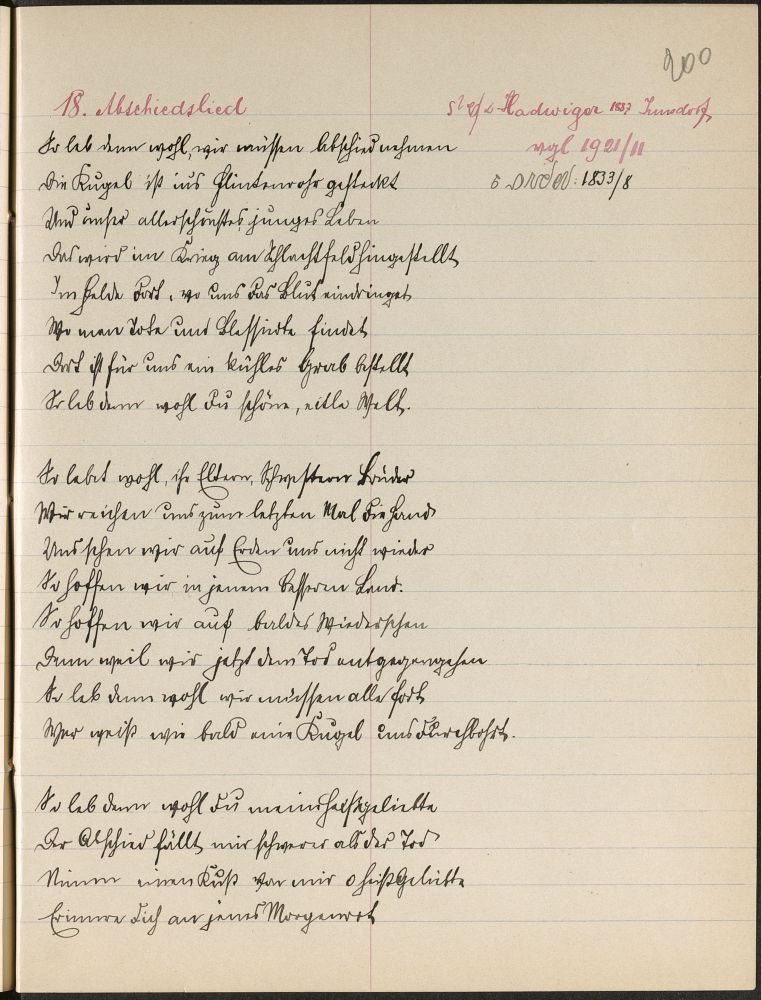 200
18. Abschiedslied
Hadwiger 1887
So leb denn wohl, wir müssen Abschied nehmen
vgl 1921/11
Die Kugel ist ins Flintenrohr gesteckt
1833/8
Und unser allerschönstes junges Leben
Das wird im Krieg am Schlachtfeld hingestellt
Im Felde dort, wo uns das Blut eindringet
Wo man Tote und Blessirte findet
Dort ist für uns ein kühles Grab bestellt
So leb denn wohl du schöne, eitle Welt.
So lebet wohl, ihr Eltern, Schwestern Brüder
Wir reichen uns zum letzten Mal die Hand
Und sehen wir auf Erden uns nicht wieder
So hoffen wir in jenem besserm Land.
So hoffen wir auf baldes Wiedersehen
Denn weil wir jetzt dem Tod entgegengehen
So leb denn wohl wir müssen alle fort
Wer weiß wie bald eine Kugel uns durchbohrt.
So leb denn wohl du meine heißgeliebte
Der Abschied fällt mir schwerer als der Tod
Nimm einen Kuß von mir o heißgeliebte
Erinnre dich an jenes Morgenrot